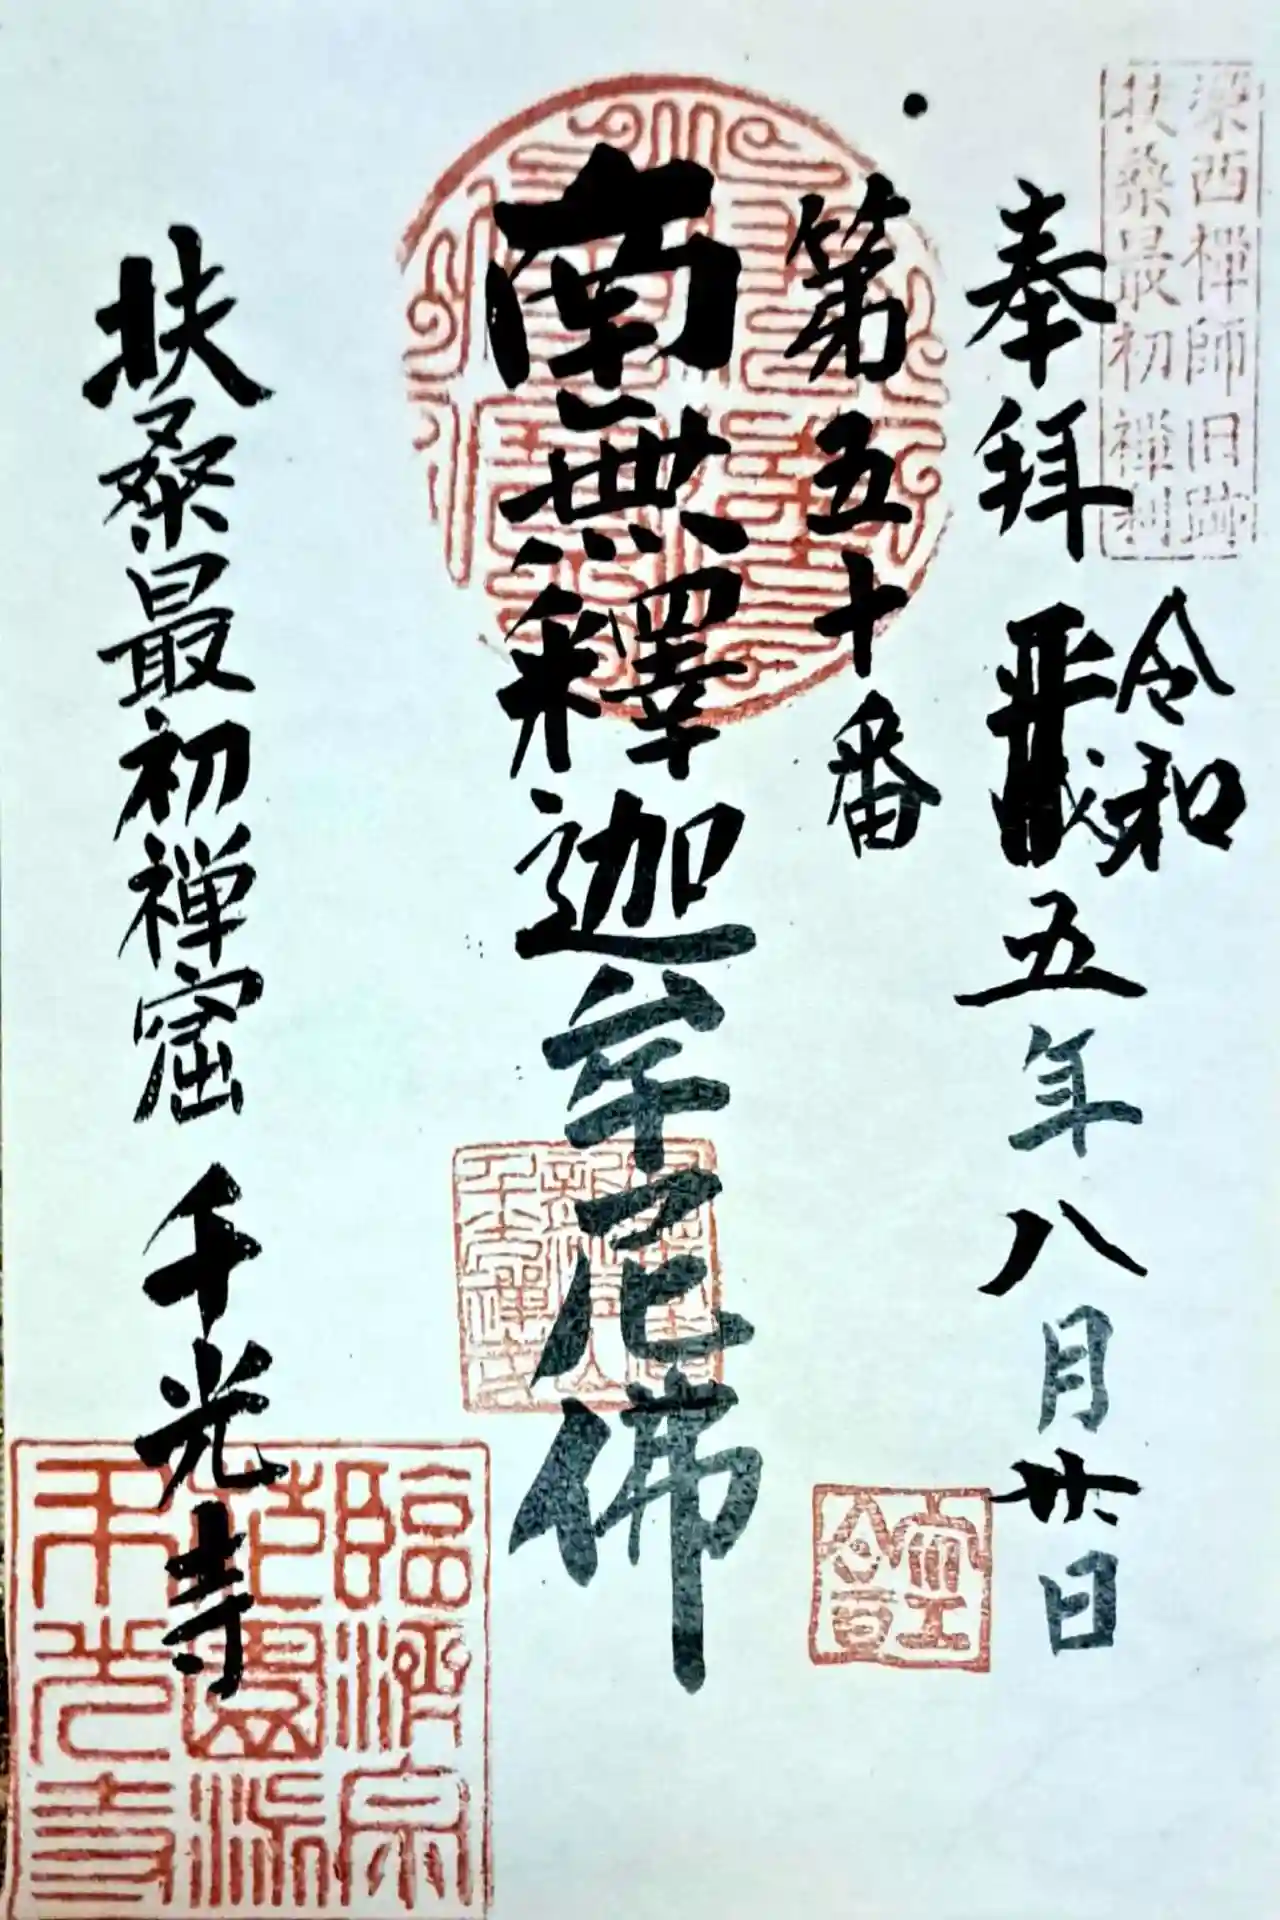 栄西禅師旧跡
扶桑最初禅刹
奉拜
令和
五年八月廿日
第五十番
南無釋迦牟尼佛
扶桑最初禅窟 千光寺
臨済宗
千光寺